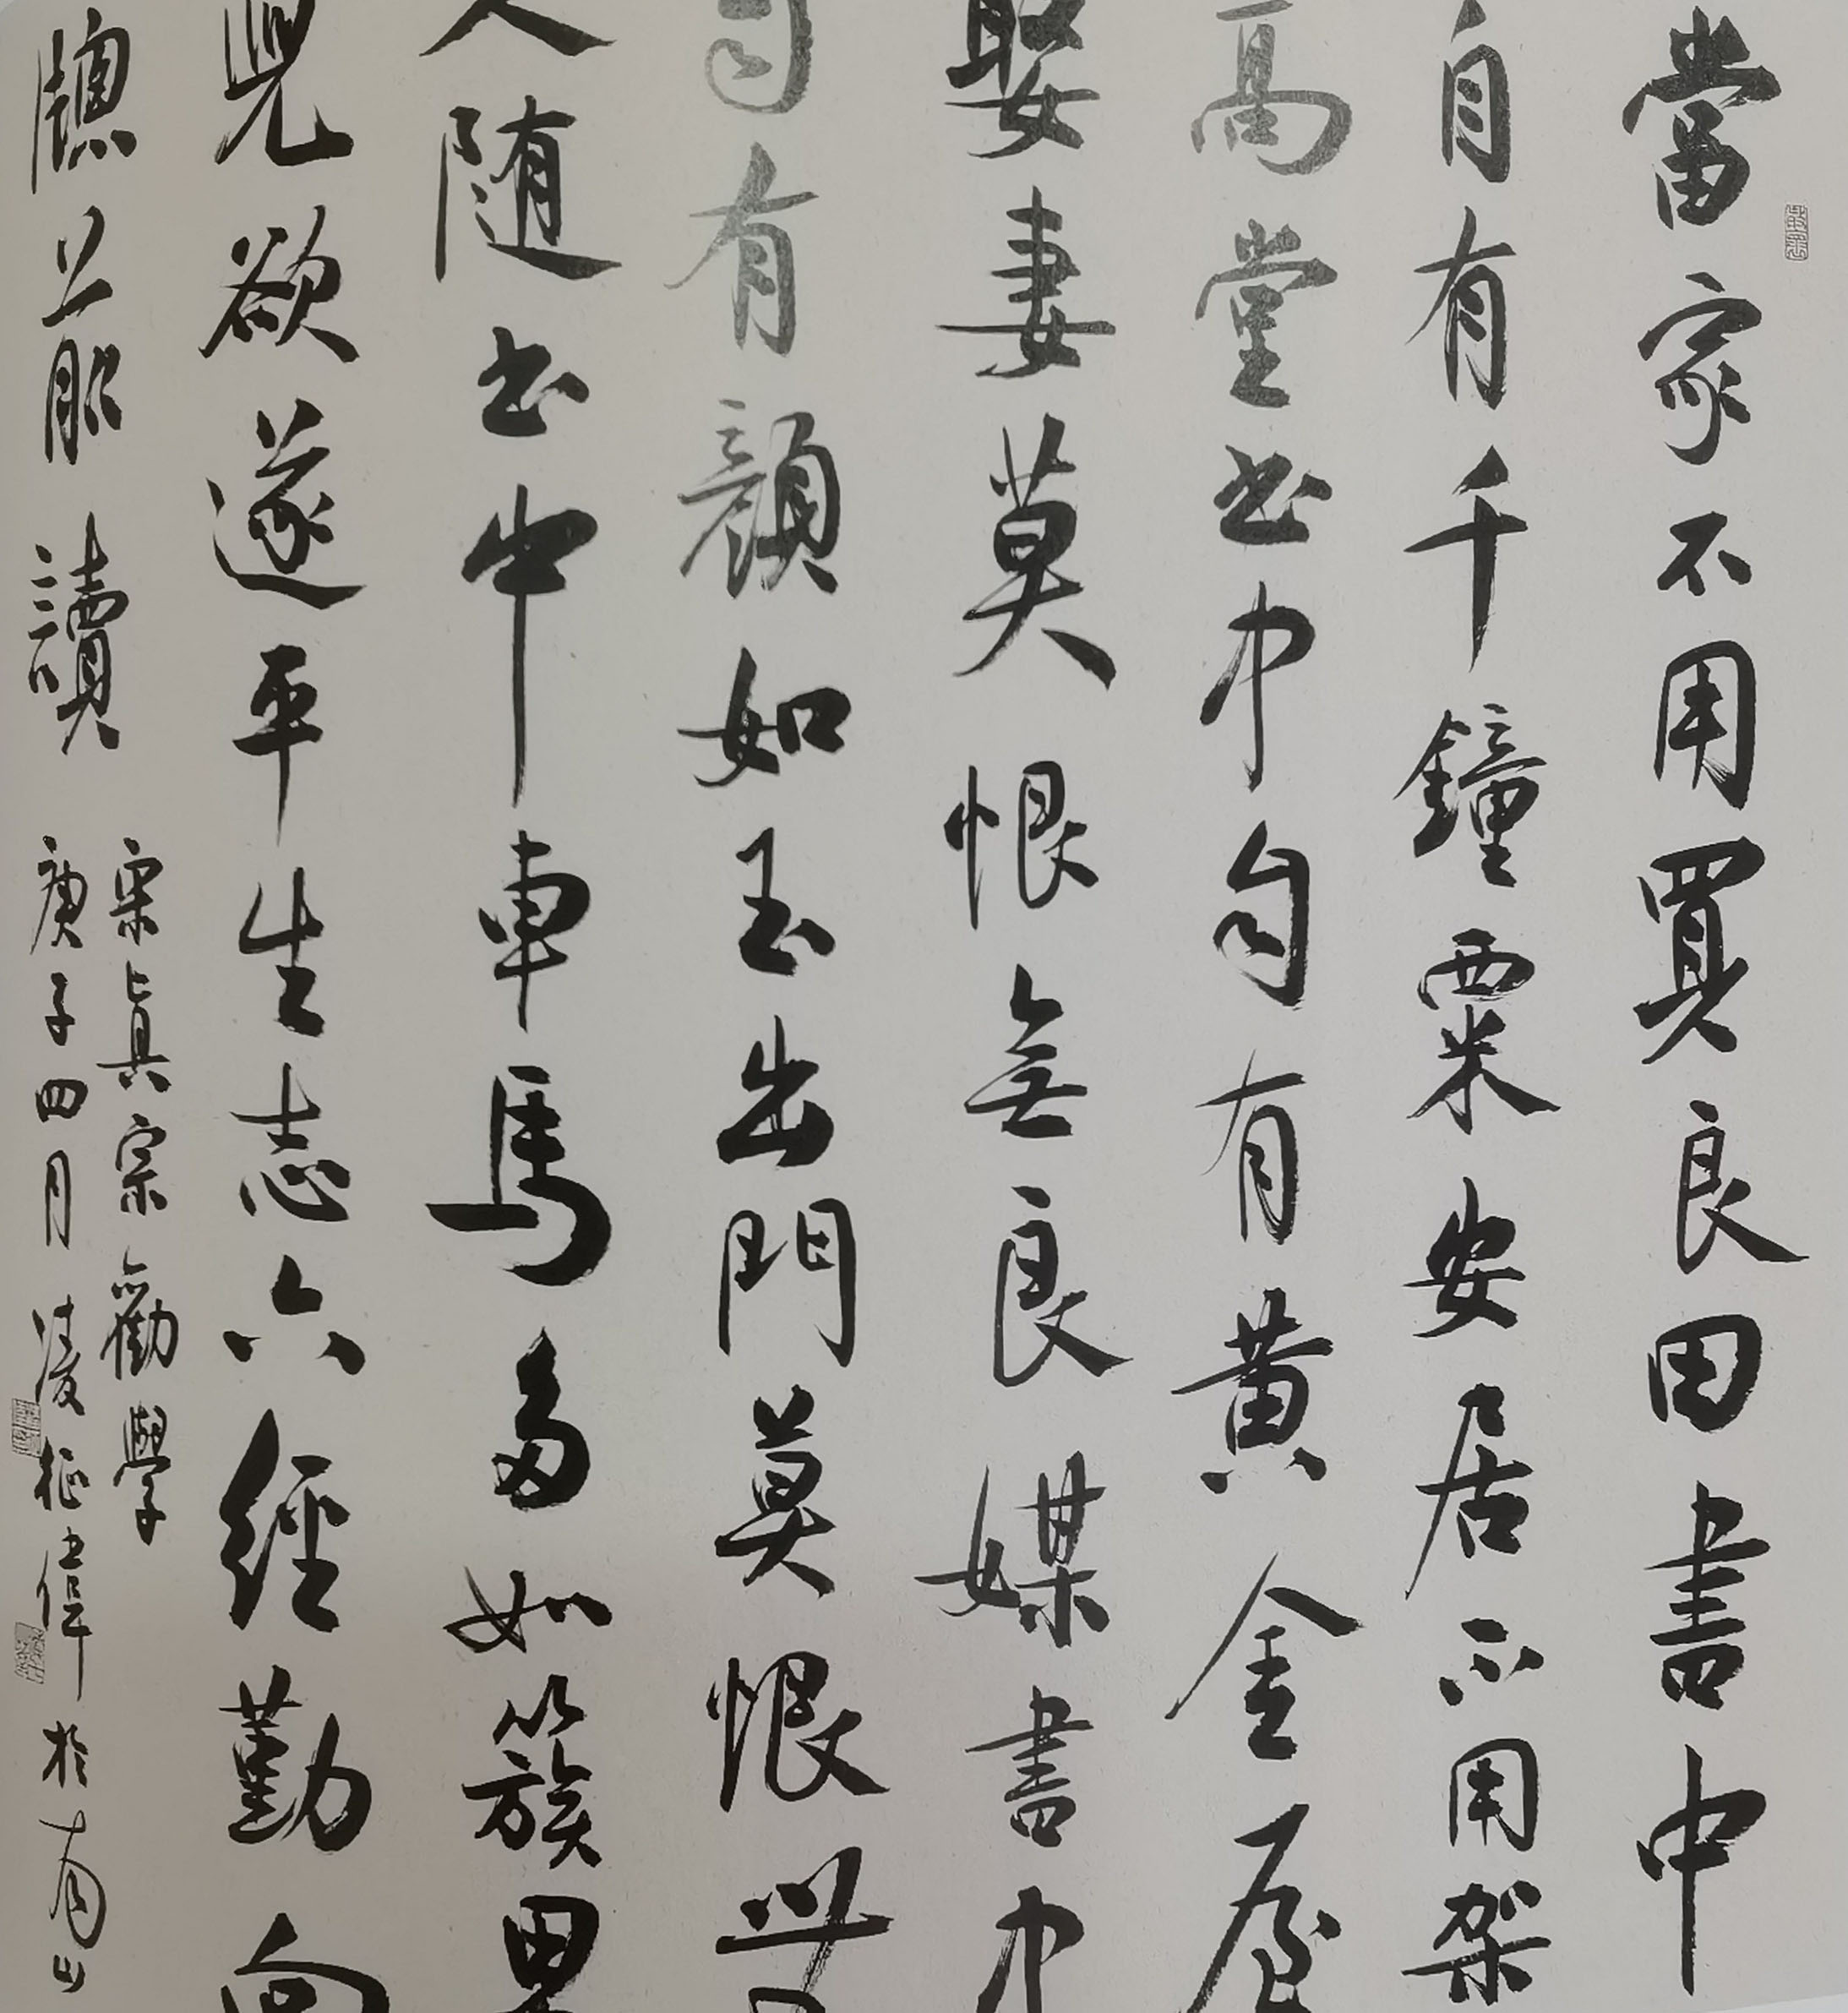 當家不用買良田書中
自有千鐘粟安居不用架
高堂书中自有黄金屋
娶妻莫恨無良媒書中
自有顏如玉出門莫恨無
人随书中車馬多如簇男
兒欲遂平生志六經勤向
牕前讀
宋真宗勸學
庚子四月凌征偉於南山